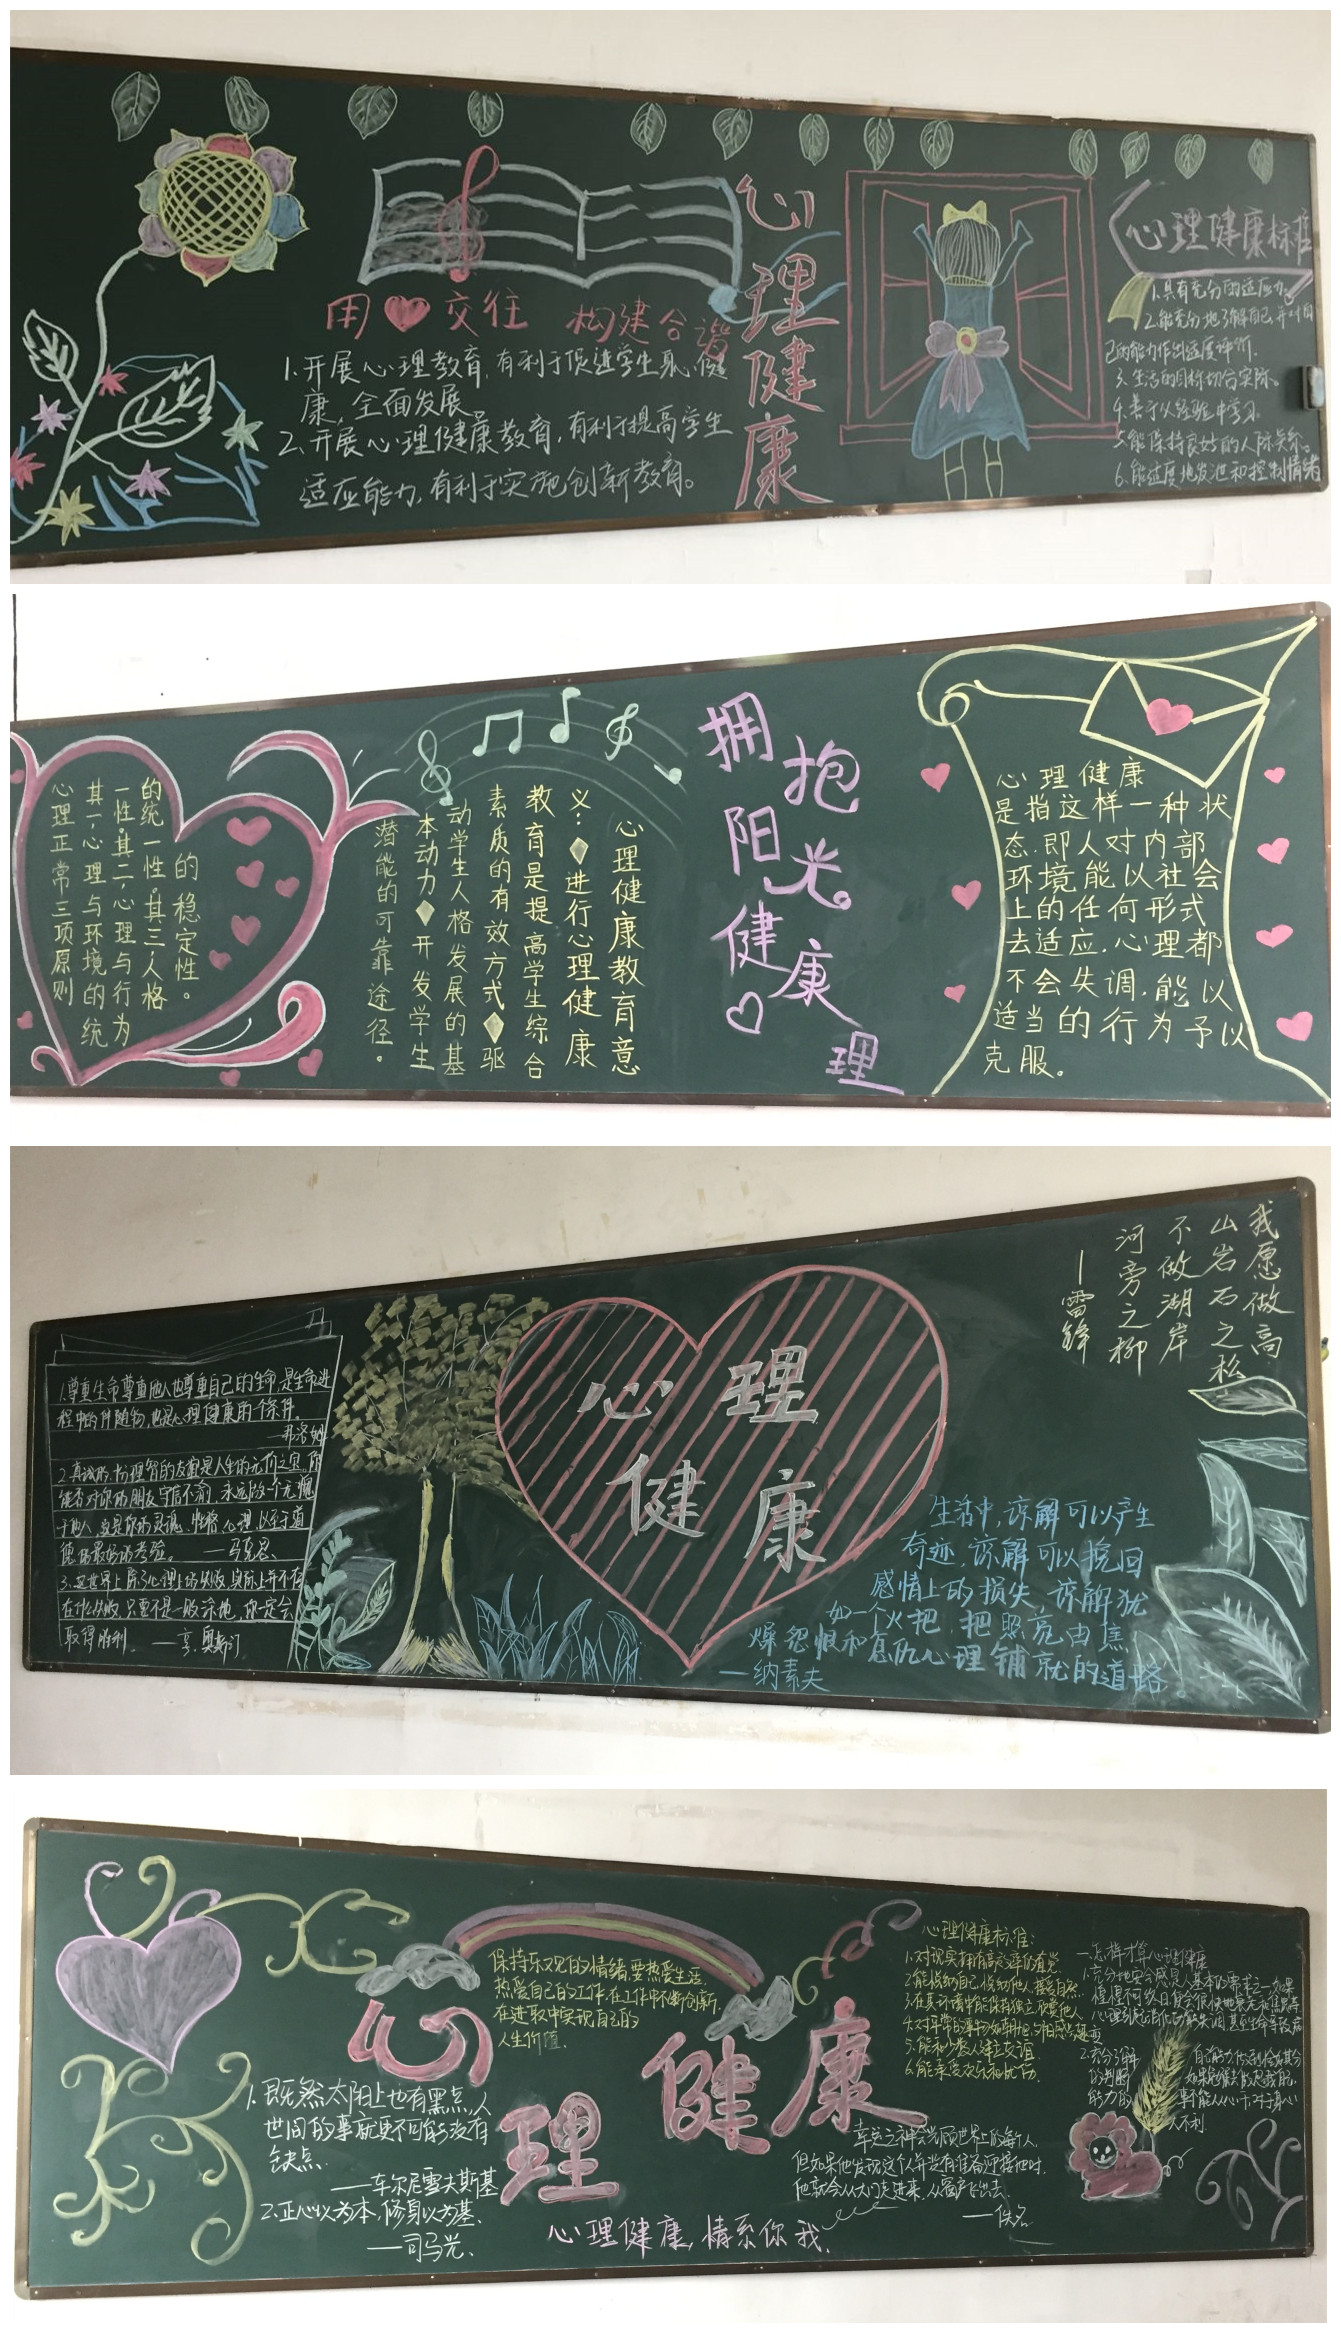 用 交往 构建合谐
1.开展心理教育,有利于促进学生身心健
康,全面发展
2.开展心理健康教育,有利于提高学生
适应能力,有利于实施创新教育。
心理健康
心理健康标准
1.具有充分的适应力
2.能充分地了解自己,并对自
己的能力作出适度评价.
3.生活的目标切合实际。
4.善于从经验中学习
5.能保持良好的人际关系。
6.能过度地发泄和控制情绪
心理正常三项原则
其一,心理与环境的统
一性.其二,心理与行为
的统一性.其三,人格
的稳定性。
心理健康教育意
义:◆进行心理健康
教育是提高学生综合
素质的有效方式◆驱
动学生人格发展的基
本动力◆开发学生
潜能的可靠途径。
拥抱阳光健康
理
心理健康
是指这样一种状
态.即人对内部
环境能以社会
上的任何形式
去适应.心理都
不会失调.能以
适当的行为予以
克服。
1.尊重生命尊重他人也尊重自己的生命,是生命进
程中的伴随物,也是心理健康的一个条件。
—弗洛姆
能否对你的朋友守信不渝,永远做一个无愧
于他人,这是你的灵魂、性格、心理、以至于道
德的最好的考验。 —马克思、
3.这世界上除了心理上的失败,实际上并不存
在什么失败,只要不是一败涂地,你一定会
取得胜利。 —亨·奥斯汀
心理
健康
我愿做高
山岩石之松
不做湖岸
河旁之柳
—雷锋
生活中,谅解可以产生
奇迹,谅解可以挽回
感情上的损失,谅解犹
如一个火把,把照亮由焦
燥怨恨和复仇心理铺就的道路。
—纳素夫
保持乐观的情绪,要热爱生活.
热爱自己的工作,在工作中不断创新.
在进取中实现自己的
人生价值.
心理健康
1.既然太阳上也有黑点,人
世间的事就更不可能没有
缺点.
—车尔尼雪夫斯基
2.正心以为本,修身以为基.
—司马光、
心理健康,情系你我.
心理健康标准:
1.对现实拥有高效率的直觉
2.能悦纳自己,悦纳他人,接受自然.
3.在真环境中能保持独立,欣赏他人
6.能享受欢乐和忧伤.
幸运之神会光顾世界上的每个人,
但如果他发现这个人并没有准备迎接他时.
他就会从大门走进来,从窗户飞出去.
—佚名
一.怎样才算心理健康